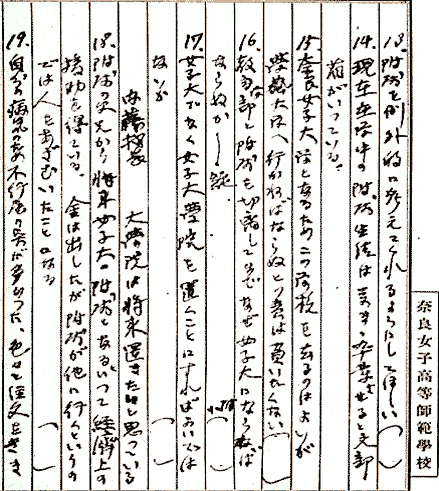 13. 附属を例外的に考えてくれるようにしてほしい（　）
14. 現在在学中の附属生徒は 卒業させると文部
省がいっている。
15. 奈良女子大 となるためこの学校を去るのはよいが
大阪へ行かねばならぬという は買いたくない（　）
16. 教 部と附属を切離してまでなぜ女子大にならねば
ならぬか
17. 女子大でなく女子大学院を置くことにすればよいでは
ないか
内藤校長　大学院は将来置きたいと思っている
18. 附属の父兄から将来女子大の附属となるといって経済上の
援助を得ている　金は出したが附属が他に行くというの
では人をあざむいたことになる
19. 自分の病気のため不行届の点が多かった、色々と をきき
奈良女子高等師範學校